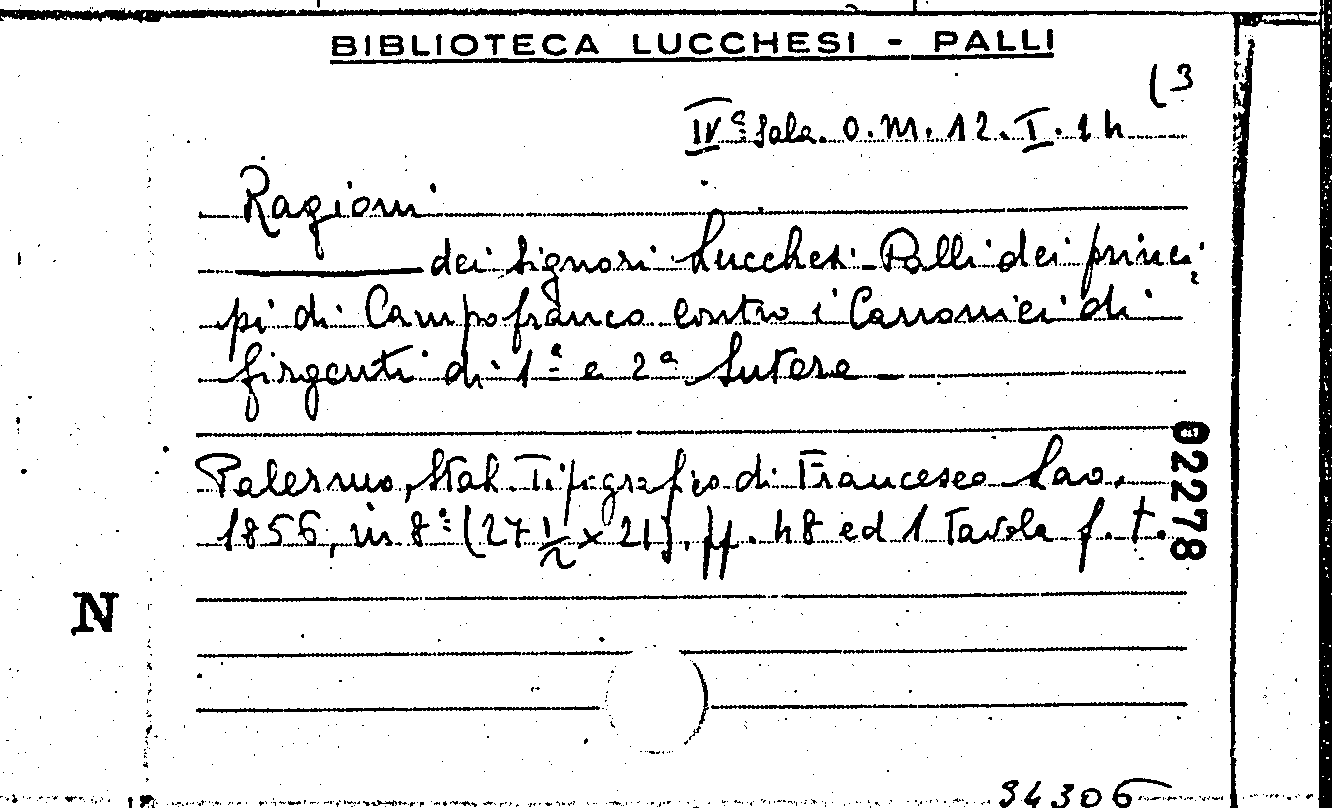 BIBLIOTECA LUCCHESI - PALLI
(3
IVª Sala. O. M. 12. I. 14
Ragioni
dei signori Lucchesi-Palli dei princi
pi di Campofranco contro i Canonici di
Girgenti di 1ª e 2ª Sutera
Palermo, Stab. Tipografico di Francesco Lao,
1856, in 8° (27 1/2 x 21), pp. 48 ed 1 Tavola f. t.
02278
N
94306